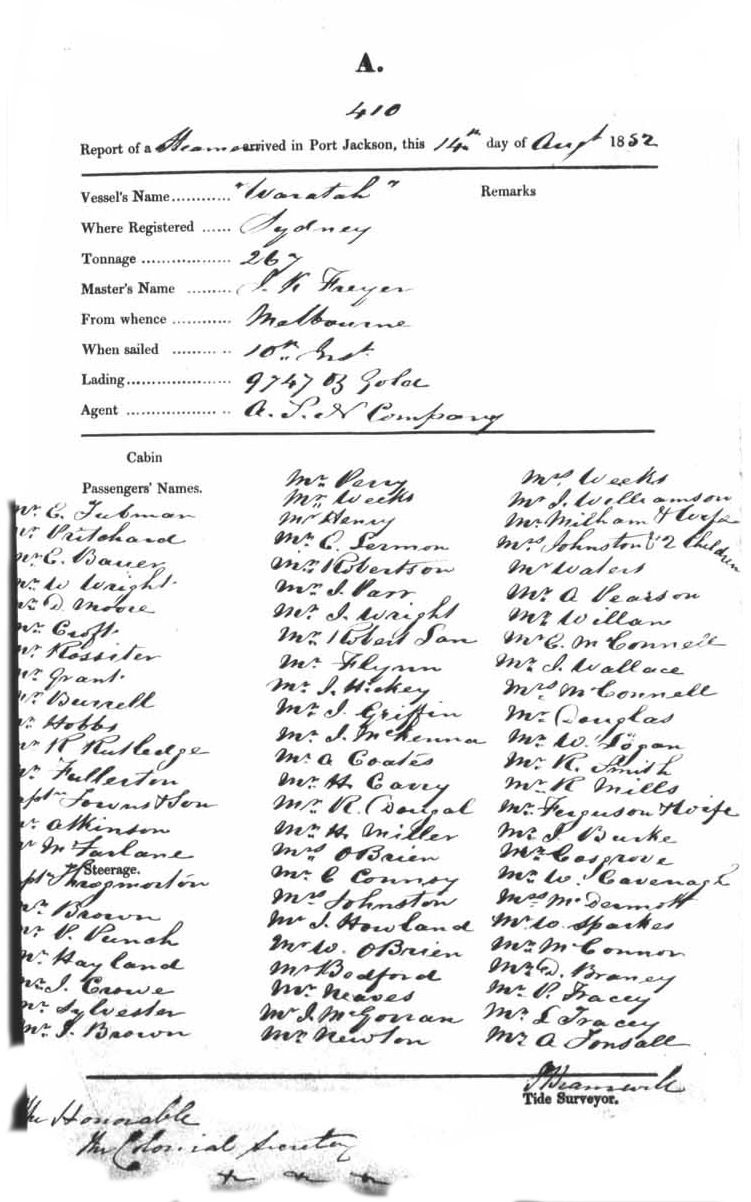 A.
410
Report of a Steamer arrived in Port Jackson, this 14th day of Augt 1852
Vessel's Name "Waratah" Remarks
Where Registered Sydney
Tonnage 267
Master's Name J. K Freyer
From whence Melbourne
When sailed 10th Inst.
Lading 9747 oz Gold
Agent A. S. N Company
Cabin
Passengers' Names.
Mr E. Tubman
Mr Pritchard
Mr E. Bauer
Mr W Wright
Mr D Moore
Mr Croft
Mr Rossiter
Mr Grant
Mr Burrell
Mr Hobbs
Mr R Rutledge
Mr Fullerton
Capt Towns & Son
Mr Atkinson
Mr McFarlane
Steerage.
Capt Throgmorton
Mr Brown
Mr P. Punch
Mr Hayland
Mr J. Crowe
Mr Sylvester
Mr J. Brown
Mr Perry
Mr Weeks
Mr Henry
Mr C. Lermon
Mr Robertson
Mr J. Parr
Mr J. Wright
Mr Robert Ian
Mr Flynn
Mr J. Hickey
Mr J. Griffin
Mr J. McKenna
Mr A Coates
Mr H Carry
Mr R. Dougal
Mr H. Miller
Mrs OBrien
Mr C Connoy
Mrs Johnston
Mr J. Howland
Mr W. OBrien
Mr Bedford
Mr Neaves
Mr J. McGovran
Mr Newton
Mrs Weeks
Mr J. Williamson
Mr Milham & Wife
Mrs Johnston & 2 Children
Mr Waters
Mr A Pearson
Mr Willan
Mr C. McConnell
Mr J. Wallace
Mrs McConnell
Mr Douglas
Mr W. Togan
Mr R. Smith
Mr R Mills
Mr Ferguson & Wife
Mr J Burke
Mr Cosgrove
Mr W. Cavenagh
Mrs McDermott
Mr W. Sparkes
Mr McConnor
Mr D. Braney
Mr P. Tracey
Mr L Tracey
Mr A Tonsall
Tide Surveyor.
The Honorable
The Colonial Secretary